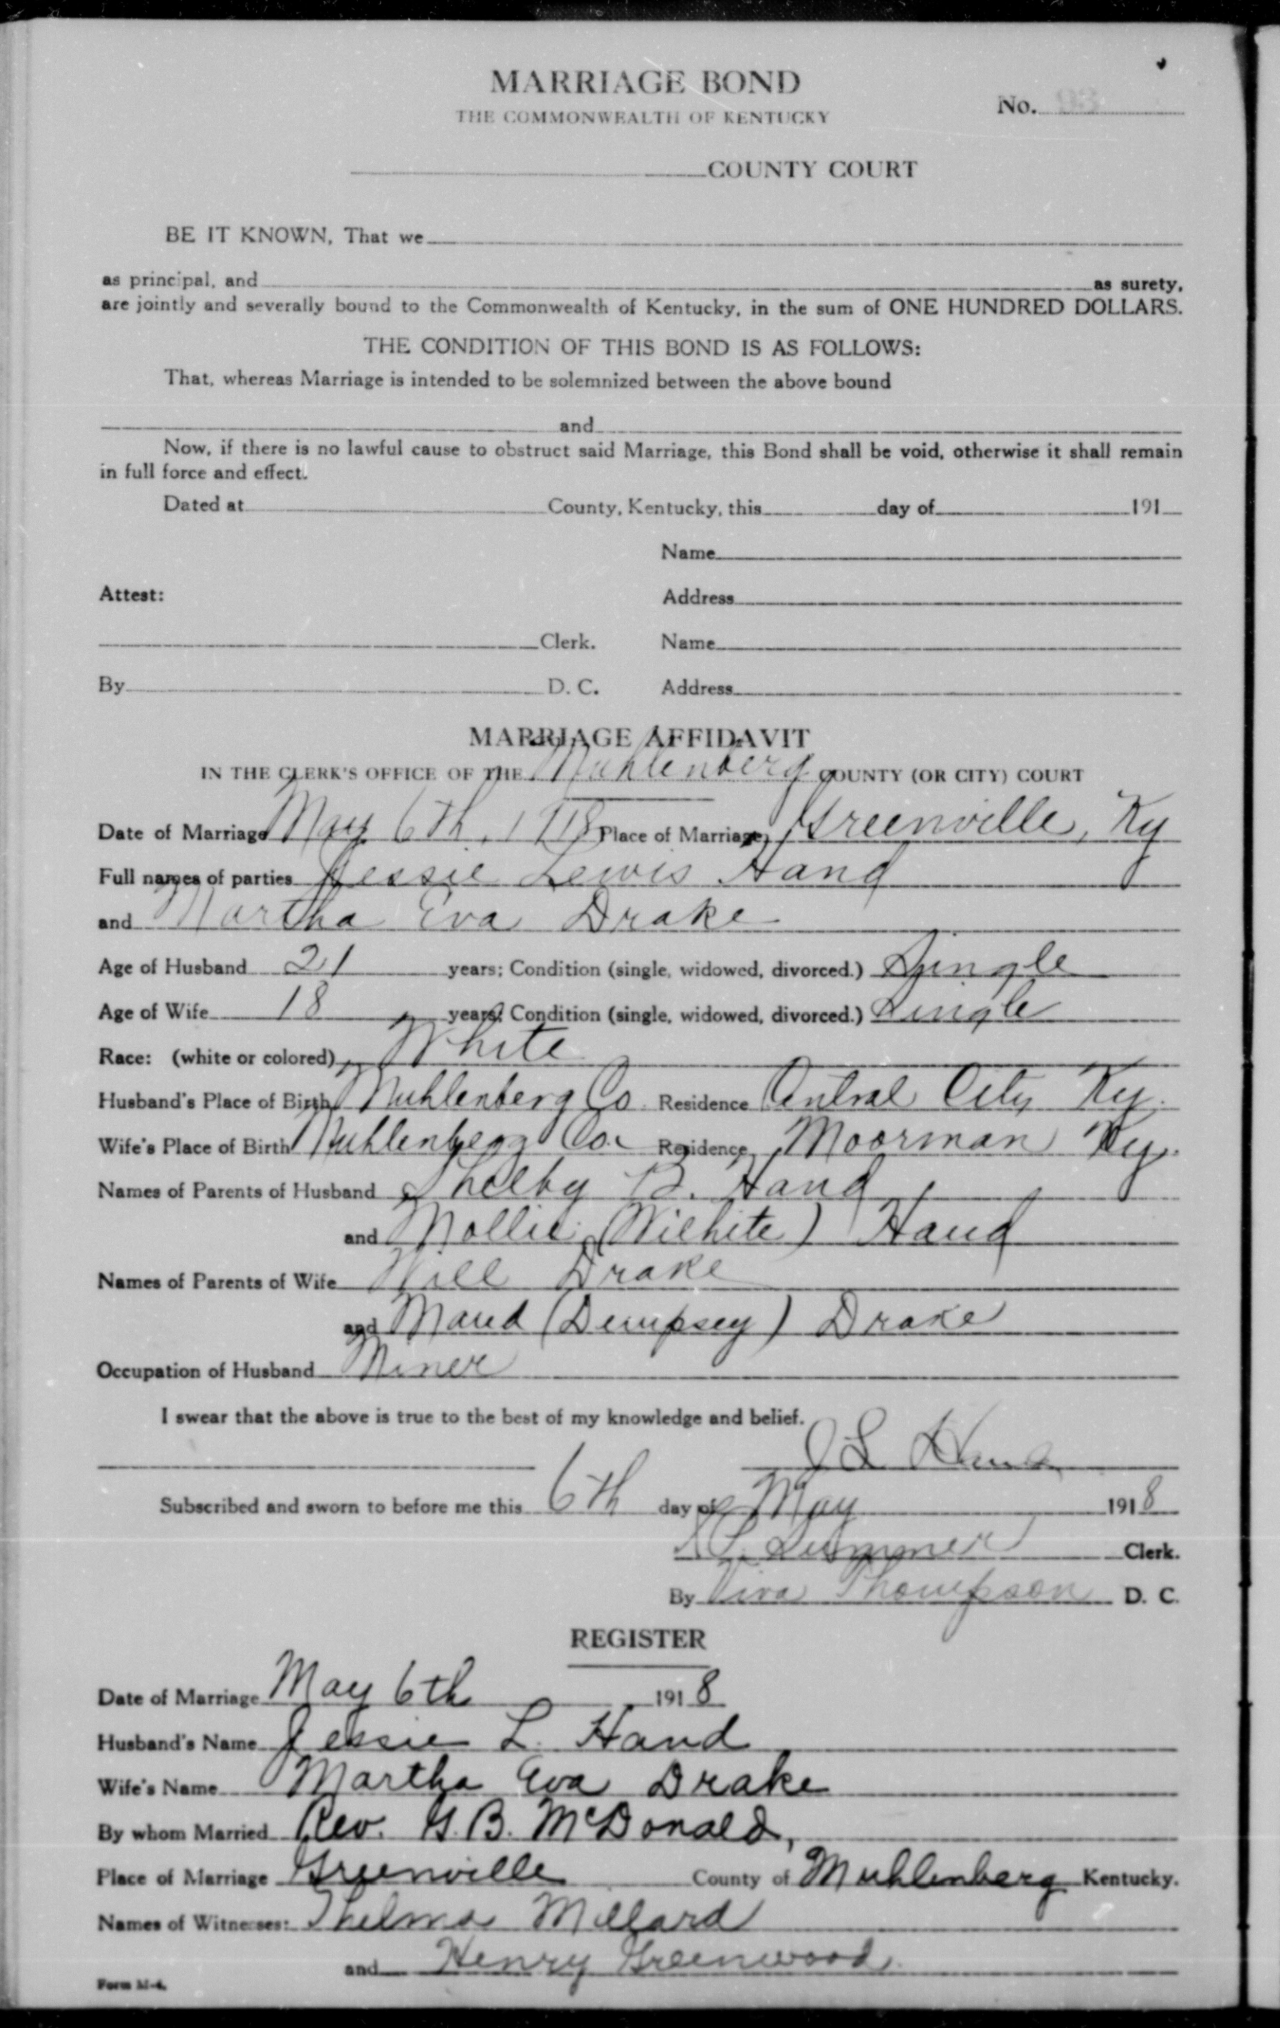 MARRIAGE BOND
THE COMMONWEALTH OF KENTUCKY
No. 93
COUNTY COURT
BE IT KNOWN, That we
as principal, and as surety,
are jointly and severally bound to the Commonwealth of Kentucky, in the sum of ONE HUNDRED DOLLARS.
THE CONDITION OF THIS BOND IS AS FOLLOWS:
That, whereas Marriage is intended to be solemnized between the above bound
and
Now, if there is no lawful cause to obstruct said Marriage, this Bond shall be void, otherwise it shall remain
in full force and effect.
Dated at County, Kentucky, this day of 191
Name
Attest: Address
Clerk. Name
By D. C. Address
MARRIAGE AFFIDAVIT
IN THE CLERK'S OFFICE OF THE Muhlenberg COUNTY (OR CITY) COURT
Date of Marriage May 6th, 1918 Place of Marriage Greenville, Ky
Full names of parties Jessie Lewis Hand
and Martha Eva Drake
Age of Husband 21 years; Condition (single, widowed, divorced.) Single
Age of Wife 18 years; Condition (single, widowed, divorced.) Single
Race: (white or colored) White
Husband's Place of Birth Muhlenberg Co. Residence Central City Ky.
Wife's Place of Birth Muhlenberg Co. Residence Moorman Ky.
Names of Parents of Husband Shelby B. Hand
and Mollie (Wilhite) Hand
Names of Parents of Wife Will Drake
and Maud (Dempsey) Drake
Occupation of Husband Miner
I swear that the above is true to the best of my knowledge and belief.
J L Hand
Subscribed and sworn to before me this 6th day of May 1918
Summer Clerk.
By Viva Thompson D. C.
REGISTER
Date of Marriage May 6th 1918
Husband's Name Jessie L. Hand
Wife's Name Martha Eva Drake
By whom Married Rev. G. B. McDonald,
Place of Marriage Greenville County of Muhlenberg Kentucky.
Names of Witnesses: Thelma Millard
and Henry Greenwood.
Form M-4.